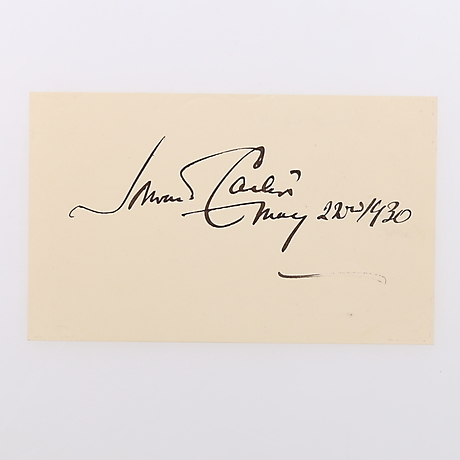 Howard Carter
May 22nd 1930